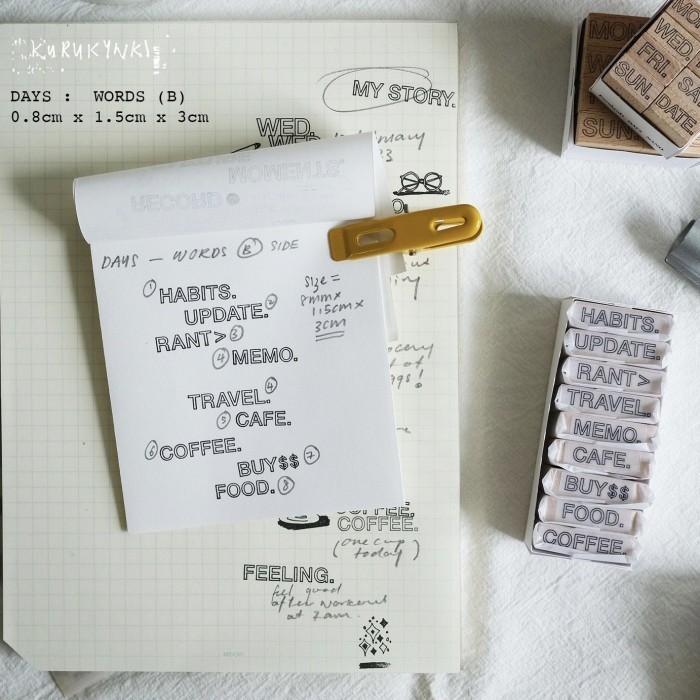 KURUKYNKI
DAYS : WORDS (B)
0.8cm x 1.5cm x 3cm
MY STORY.
WED.
WED.
DAYS — WORDS (B) SIDE
① HABITS.
UPDATE. ②
RANT> ③
④ MEMO.
TRAVEL. ④
⑤ CAFE.
⑥ COFFEE.
BUY$$ ⑦
FOOD. ⑧
size =
8mm x
1.5cm x
3cm
COFFEE.
COFFEE.
(one cup
today)
FEELING.
feel good
after workout
at 7am.
HABITS.
UPDATE.
RANT>
TRAVEL.
MEMO.
CAFE.
BUY$$
FOOD.
COFFEE.
MON
WED
FRI.
SUN.
DATE
SUN